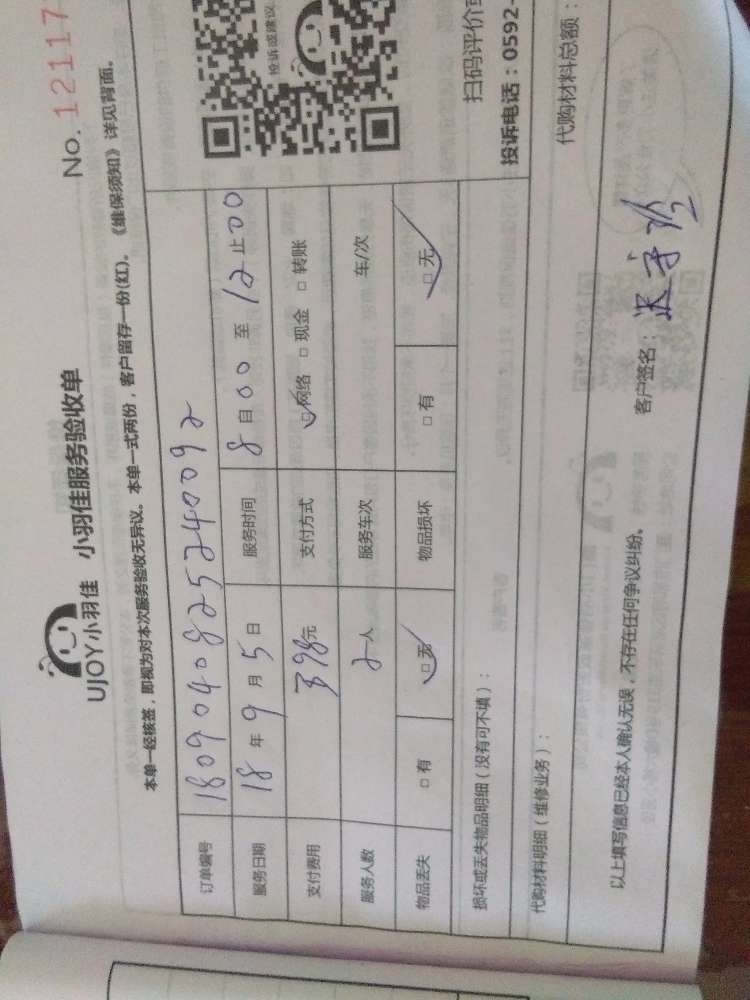 UJOY小羽佳 小羽佳服务验收单
No. 12117
本单一经核签，即视为对本次服务验收无异议。本单一式两份，客户留存一份(红)。《维保须知》详见背面。
订单编号 1809040825240092
服务日期 18 年 9 月 5 日 服务时间 8 自 00 至 12 止 00
支付费用 398元 支付方式 ☑网络 □现金 □转账
服务人数 2人 服务车次 车/次
物品丢失 □有 ☑无 物品损坏 □有 ☑无
投诉或建议
扫码评价或
投诉电话：0592-
损坏或丢失物品明细（没有可不填）：
代购材料明细（维修业务）： 代购材料总额：
以上填写信息已经本人确认无误，不存在任何争议纠纷。 客户签名：